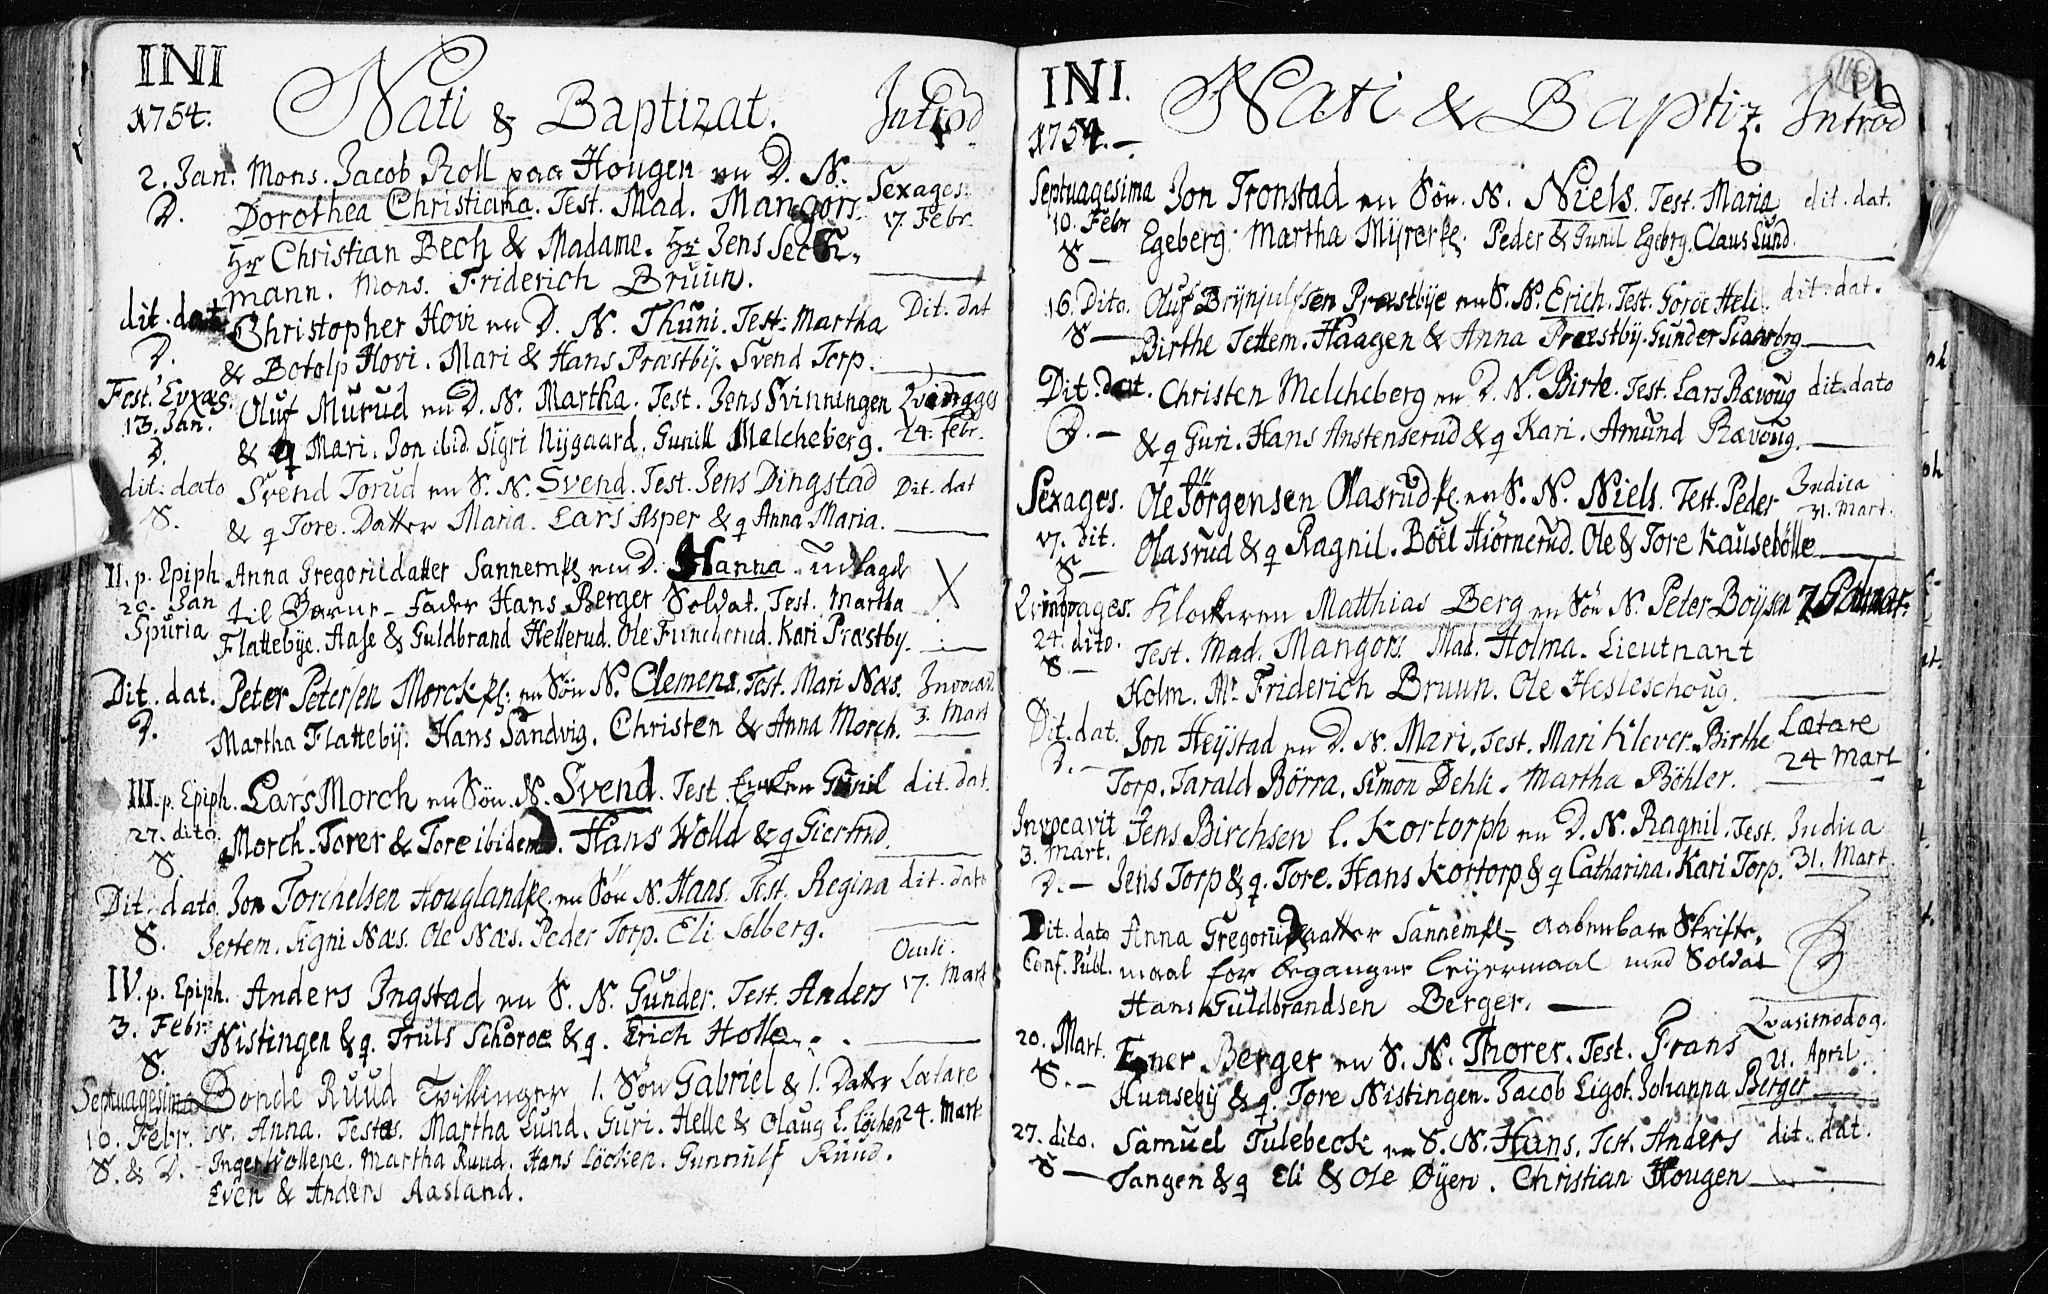 INI
1754.
Nati & Baptizat.
Introd
2. Jan. Mons. Jacob Roll paa Hougen en D. N. Sexages:
D. Dorothea Christiana. Test. Mad. Mangors. 17. Febr.
Hr Christian Bech & Madame. Hr Jens
mann. Mons. Friderich Bruun.
dit. dat. Christopher Hovi en D. N. Thuni. Test. Martha Dit. dat
D. & Botolp Hovi. Mari & Hans Præstbÿ. Svend Torp.
Fest. Oluf Murud en D. N. Martha. Test. Jens Svinningen
13. Jan. & q Mari. Jon ibid. Sigri Nÿgaard. Gunill Melcheberg. 24. febr.
D.
dit. dato Svend Torud en S. N. Svend. Test. Jens Dingstad Dit. dat
S. & q Tore. Datter Maria. Lars Asper & q Anna Maria.
II. p. Epiph Anna Gregorildatter Sannemsk en D. Hanna udlagd X
20. Jan til Barne-Fader Hans Berger Soldat. Test. Martha
Spuria Flattebÿe. Aase & Guldbrand Hellerud. Ole Funcherud. Kari Præstby.
Dit. dat. Peter Petersen Morck en Søn N. Clemens. Test. Mari Næs. Invocav.
Martha Flattebÿ. Hans Sandvig. Christen & Anna Morch. 3. Mart
III. p. Epiph. Lars Morch en Søn. N. Svend. Test. Enken Gunil dit. dat.
27. dito. Morch. Torer & Tore ibidem. Hans Wolld & q Giertrud.
S.
Dit. dato Jon Torchelsen en Søn N. Hans. Test. Regina dit. dato
S. Jertem. Signi Næs. Ole Næs. Peder Torp. Eli Solberg.
Oculi.
IV. p. Epiph. Anders Ingstad en S. N. Gunder. Test. Anders 17. Mart
3. Febr. Nistingen & q. Truls Schøroe & q. Erich Holle
S.
Septuagesima Bonde Ruud Twillinger 1. Søn Gabriel & 1. Datter Lætare
10. Febr. N. Anna. Testes. Martha Lund. Guri. Helle & Olaug 24. Mart
S. & D. Inger Wollene. Martha Ruud. Hans Løcken. Gunnulf Ruud.
Even & Anders Aasland.
INI.
1754.
Nati & Baptiz.
Introd
116
Septuagesima Jon Tronstad en Søn. N. Niels. Test. Maria dit. dat.
10. Febr Egeberg. Martha Peder & Gunil Egebrg. Claus Lund.
S
16. Dito. Oluf Brÿnjulfsen Præstbÿe en S. N. Erich. Test. Heli dit. dat.
S Birthe Tettem. Haagen & Anna Præstbÿ. Gunder
Dit. dat. Christen Melcheberg en D. N. Birte. Test. Lars Rævoug dit. dato
D. & q Guri. Hans Anstenserud & q Kari. Amund Rævoug.
Sexages. Ole Jörgensen Olasrud en S. N. Niels. Test. Peder Judica
31. Mart.
17. Dit. Olasrud & q Ragnil. Böel Hiørnerud. Ole & Tore Kausebölle
S
Klockeren Matthias Berg en Søn N. Peter Boÿsen
24. dito. Test. Mad. Mangors. Mad. Holma. Lieutnant
S Holm. Mr. Friderich Bruun. Ole Hesleschoug.
Dit. dat. Jon Heÿstad en D. N. Mari. Test. Mari Klever. Birthe Lætare
D. Torp. Tarald Börra. Simon Dehli. Martha Böhler. 24 Mart
Invocavit Jens Birchsen l. Kortorph en D. N. Ragnil. Test. Judica
3. Mart. Jens Torp & q. Tore. Hans Kortorp & q Catharina. Kari Torp. 31. Mart
D.
Dit. dato Anna Gregorii Daatter Sannemsk aabenbare Skrifte-
Conf. Publ. maal for begangne leÿermaal med Soldat
Hans Guldbrandsen Berger.
Qvasimodog.
20. Mart. Ener Berger en S. N. Thorer. Test. Frans 21. April.
S. Hunsebÿ & q. Tore Nistingen. Jacob Ligot. Johanna Berger
27. dito. Samuel Tulebeck en S. N. Hans. Test. Anders dit. dat.
S Tangen & q Eli & Ole Øÿen. Christian Hougen